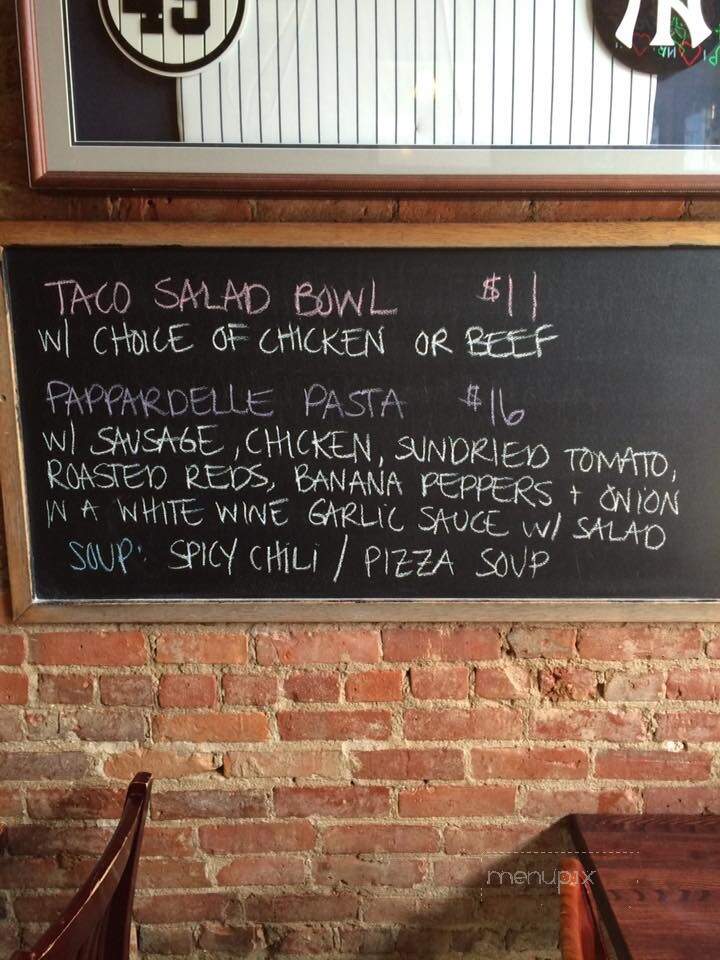 45
NY
TACO SALAD BOWL $11
W/ CHOICE OF CHICKEN OR BEEF
PAPPARDELLE PASTA $16
W/ SAUSAGE, CHICKEN, SUNDRIED TOMATO,
ROASTED REDS, BANANA PEPPERS + ONION
IN A WHITE WINE GARLIC SAUCE W/ SALAD
SOUP: SPICY CHILI / PIZZA SOUP
menupix